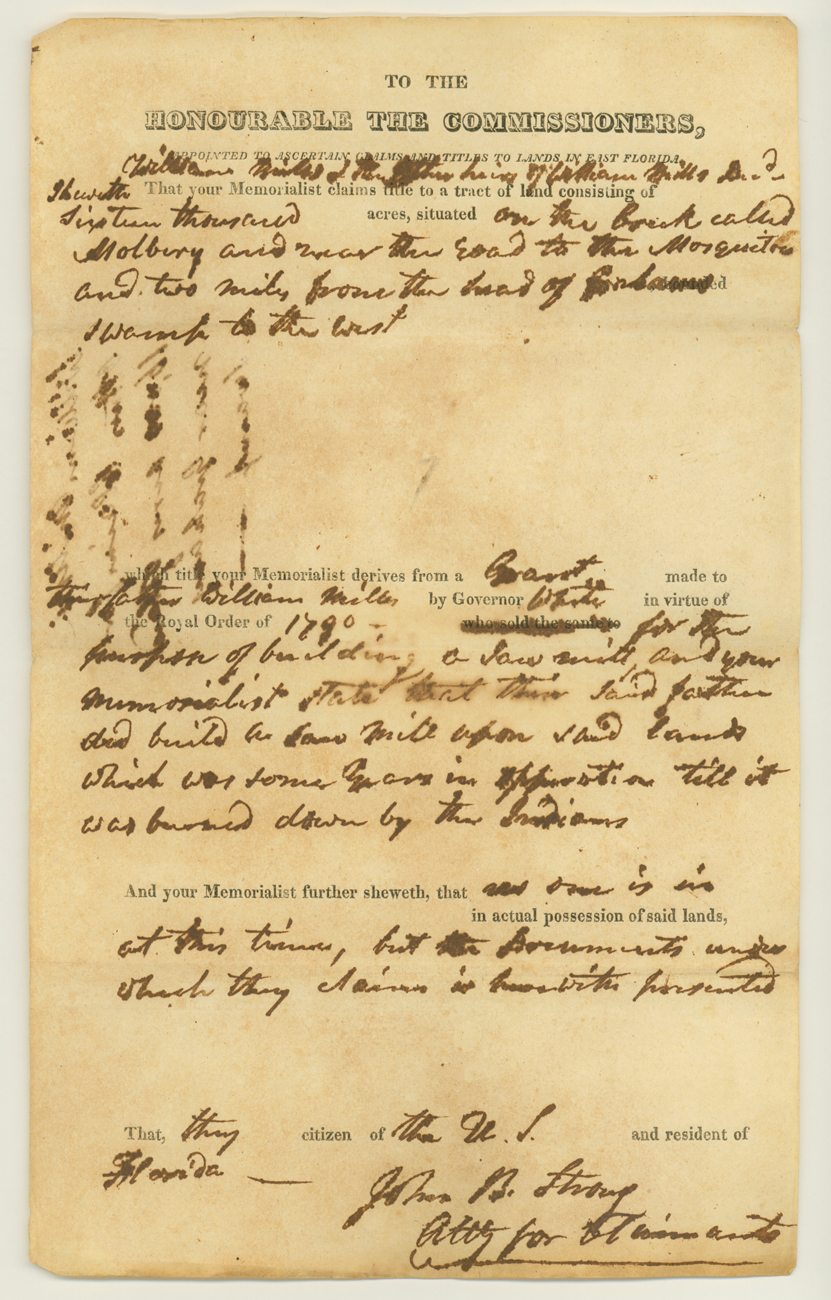 TO THE
HONOURABLE THE COMMISSIONERS,
APPOINTED TO ASCERTAIN CLAIMS AND TITLES TO LANDS IN EAST FLORIDA,
William Mills & the other heirs of William Mills Decd
Sheweth That your Memorialist claims title to a tract of land consisting of
Sixteen thousand acres, situated on the Creek called
Molbery and near the road to the Mosquitoe
and two miles from the head of
swamp to the west
which title your Memorialist derives from a Grant made to
their father William Mills by Governor White in virtue of
the Royal Order of 1790 - who sold the same to for the
purpose of building a saw mill, and your
memorialist state that their said father
did build a saw Mill upon said lands
which was some Years in opperation till it
was burned down by the Indians
And your Memorialist further sheweth, that no one is in
in actual possession of said lands,
at this time, but the Documents under
which they claim is herewith presented
That, they citizen of the U. S. and resident of
Florida —
John B. Strong
Atty for Claimants